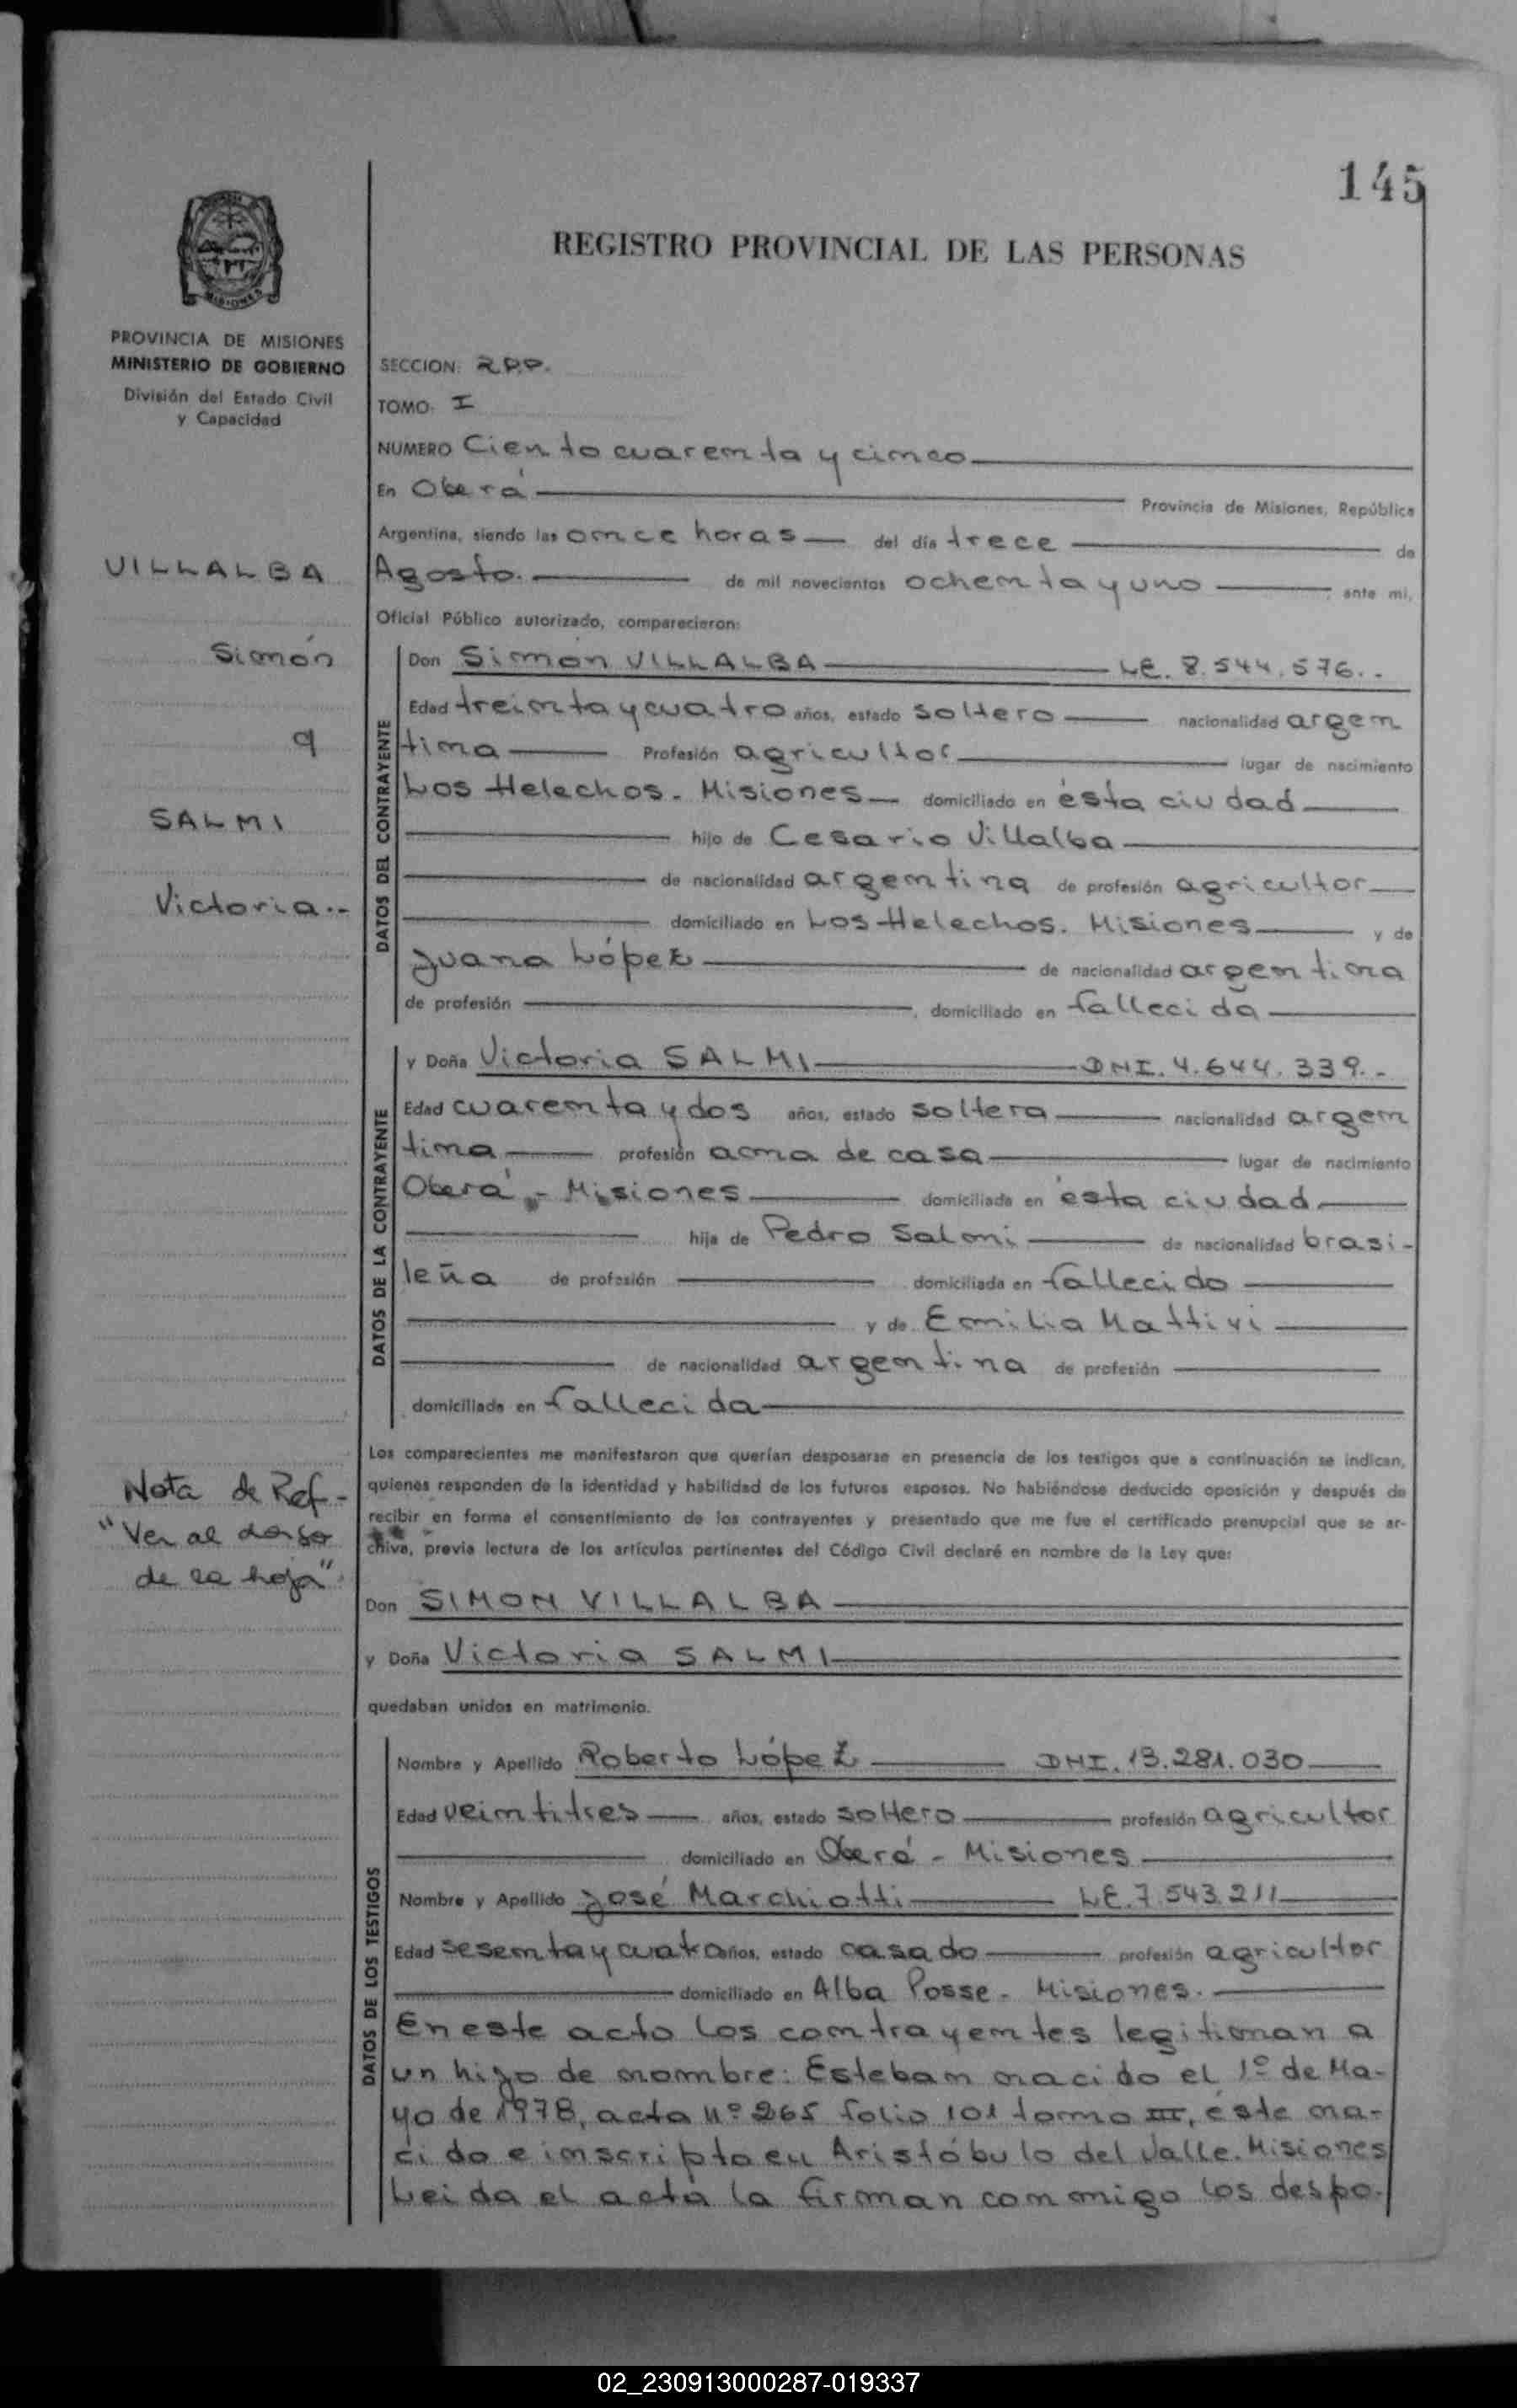 145
REGISTRO PROVINCIAL DE LAS PERSONAS
MISIONES
PROVINCIA DE MISIONES
MINISTERIO DE GOBIERNO
División del Estado Civil
y Capacidad
VILLALBA
Simón
y
SALMI
Victoria.-
Nota de Ref-
"Ver al dorso
de la hoja".
SECCION: R.P.P.
TOMO: I
NUMERO Ciento cuarenta y cinco
En Oberá Provincia de Misiones, República
Argentina, siendo las once horas del día trece de
Agosto. de mil novecientos ochenta y uno ante mi,
Oficial Público autorizado, comparecieron:
DATOS DEL CONTRAYENTE
Don Simón VILLALBA LE. 8.544.576..
Edad treinta y cuatro años, estado soltero nacionalidad argen
tina Profesión agricultor lugar de nacimiento
Los Helechos. Misiones domiciliado en ésta ciudad
hijo de Cesario Villalba
de nacionalidad argentina de profesión agricultor
domiciliado en Los Helechos. Misiones y de
Juana López de nacionalidad argentina
de profesión , domiciliado en fallecida
DATOS DE LA CONTRAYENTE
y Doña Victoria SALMI DNI. 4.644.339.-
Edad cuarenta y dos años, estado soltera nacionalidad argen
tina profesión ama de casa lugar de nacimiento
Oberá - Misiones domiciliada en ésta ciudad
hija de Pedro Salmi de nacionalidad brasi-
leña de profesión domiciliada en fallecido
y de Emilia Mattivi
de nacionalidad argentina de profesión
domiciliada en fallecida
Los comparecientes me manifestaron que querían desposarse en presencia de los testigos que a continuación se indican,
quienes responden de la identidad y habilidad de los futuros esposos. No habiéndose deducido oposición y después de
recibir en forma el consentimiento de los contrayentes y presentado que me fue el certificado prenupcial que se ar-
chiva, previa lectura de los artículos pertinentes del Código Civil declaré en nombre de la Ley que:
Don SIMON VILLALBA
y Doña Victoria SALMI
quedaban unidos en matrimonio.
DATOS DE LOS TESTIGOS
Nombre y Apellido Roberto López DNI. 13.281.030
Edad veintitres años, estado soltero profesión agricultor
domiciliado en Oberá - Misiones
Nombre y Apellido José Marchiotti LE. 7.543.211
Edad sesenta y cuatro años, estado casado profesión agricultor
domiciliado en Alba Posse - Misiones.
En este acto los contrayentes legitiman a
un hijo de nombre: Esteban nacido el 1º de Ma-
yo de 1978, acta nº 265 folio 101 tomo III, éste na-
cido e inscripto en Aristóbulo del Valle. Misiones
Leida el acta la firman conmigo los despo.
02_230913000287-019337